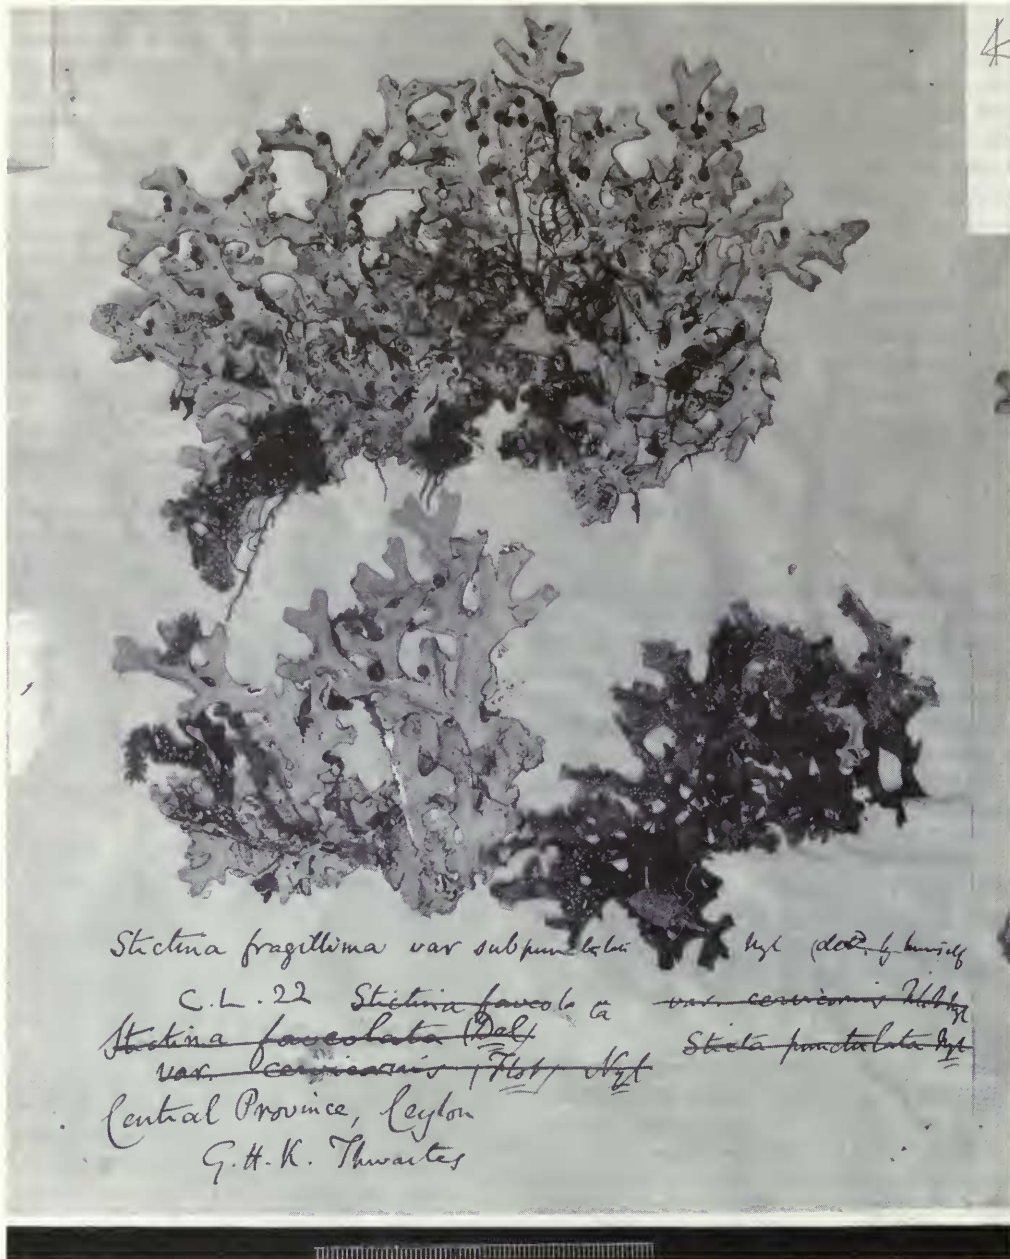 Stictina fragillima var subpunctulata Nyl (det. by himself
C.L.22 Stictina faveola ta var. cervicornis Flot Nyl
Stictina faveolata (Del) Sticta punctulata Nyl
var. cervicornis (Flot) Nyl
Central Province, Ceylon
G.H.K. Thwaites